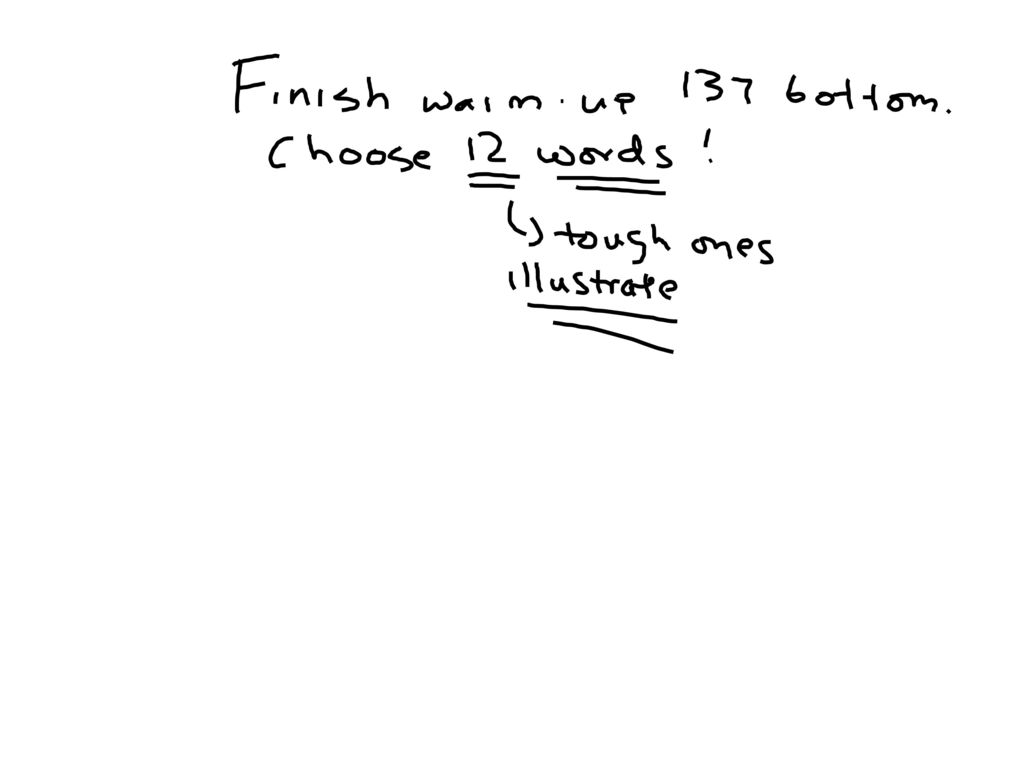 Finish warm-up 137 bottom.
Choose 12 words!
↳ tough ones
illustrate